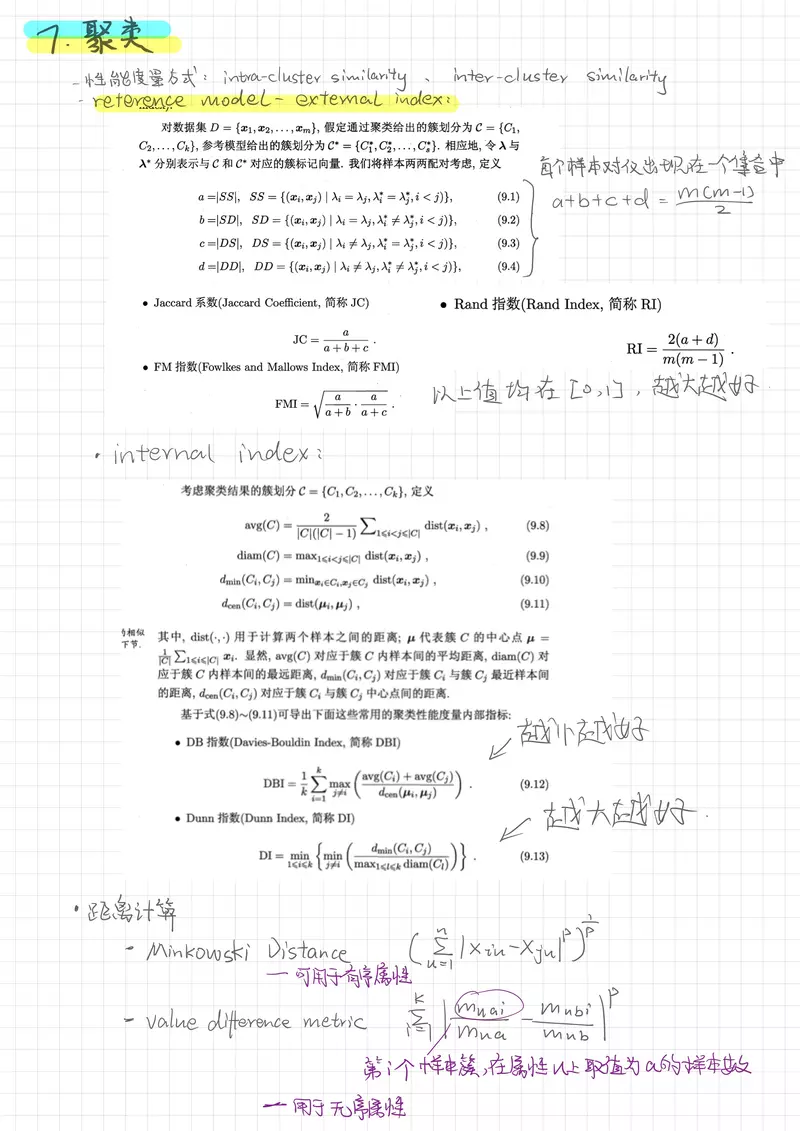 7. 聚类
- 性能度量方式: intra-cluster similarity、inter-cluster similarity
- reference model - external index:
对数据集 D = {x₁, x₂, ..., xₘ}, 假定通过聚类给出的簇划分为 C = {C₁,
C₂, ..., Cₖ}, 参考模型给出的簇划分为 C* = {C₁*, C₂*, ..., Cₛ*}. 相应地, 令 λ 与
λ* 分别表示与 C 和 C* 对应的簇标记向量. 我们将样本两两配对考虑, 定义
每个样本对仅出现在一个集合中
a+b+c+d = m(m-1)/2
a = |SS|, SS = {(xᵢ, xⱼ) | λᵢ = λⱼ, λᵢ* = λⱼ*, i < j)}, (9.1)
b = |SD|, SD = {(xᵢ, xⱼ) | λᵢ = λⱼ, λᵢ* ≠ λⱼ*, i < j)}, (9.2)
c = |DS|, DS = {(xᵢ, xⱼ) | λᵢ ≠ λⱼ, λᵢ* = λⱼ*, i < j)}, (9.3)
d = |DD|, DD = {(xᵢ, xⱼ) | λᵢ ≠ λⱼ, λᵢ* ≠ λⱼ*, i < j)}, (9.4)
• Jaccard 系数(Jaccard Coefficient, 简称 JC)
JC = a/(a+b+c) .
• FM 指数(Fowlkes and Mallows Index, 简称 FMI)
FMI = √(a/(a+b) · a/(a+c)) .
• Rand 指数(Rand Index, 简称 RI)
RI = 2(a+d)/(m(m−1)) .
以上值均在 [0,1], 越大越好.
• internal index:
考虑聚类结果的簇划分 C = {C₁, C₂, ..., Cₖ}, 定义
avg(C) = 2/(|C|(|C|−1)) ∑1⩽i<j⩽|C| dist(xᵢ, xⱼ) , (9.8)
diam(C) = max1⩽i<j⩽|C| dist(xᵢ, xⱼ) , (9.9)
dmin(Cᵢ, Cⱼ) = minxᵢ∈Cᵢ,xⱼ∈Cⱼ dist(xᵢ, xⱼ) , (9.10)
dcen(Cᵢ, Cⱼ) = dist(μᵢ, μⱼ) , (9.11)
相似
下节.
其中, dist(·,·) 用于计算两个样本之间的距离; μ 代表簇 C 的中心点 μ =
1/|C| ∑1⩽i⩽|C| xᵢ. 显然, avg(C) 对应于簇 C 内样本间的平均距离, diam(C) 对
应于簇 C 内样本间的最远距离, dmin(Cᵢ, Cⱼ) 对应于簇 Cᵢ 与簇 Cⱼ 最近样本间
的距离, dcen(Cᵢ, Cⱼ) 对应于簇 Cᵢ 与簇 Cⱼ 中心点间的距离.
基于式(9.8)~(9.11)可导出下面这些常用的聚类性能度量内部指标:
越小越好
• DB 指数(Davies-Bouldin Index, 简称 DBI)
DBI = 1/k ∑ᵢ₌₁ᵏ max j≠i ((avg(Cᵢ) + avg(Cⱼ))/dcen(μᵢ, μⱼ)) . (9.12)
越大越好.
• Dunn 指数(Dunn Index, 简称 DI)
DI = min 1⩽i⩽k {min j≠i (dmin(Cᵢ, Cⱼ)/max1⩽l⩽k diam(Cₗ))} . (9.13)
• 距离计算
- Minkowski Distance (∑ᵤ₌₁ⁿ |xᵢᵤ - xⱼᵤ|ᵖ)^(1/p)
— 可用于有序属性
- value difference metric ∑ᵢ₌₁ᵏ |m u,a,i / m u,a - m u,b,i / m u,b|ᵖ
第i个样本簇, 在属性u上取值为a的样本数
— 用于无序属性